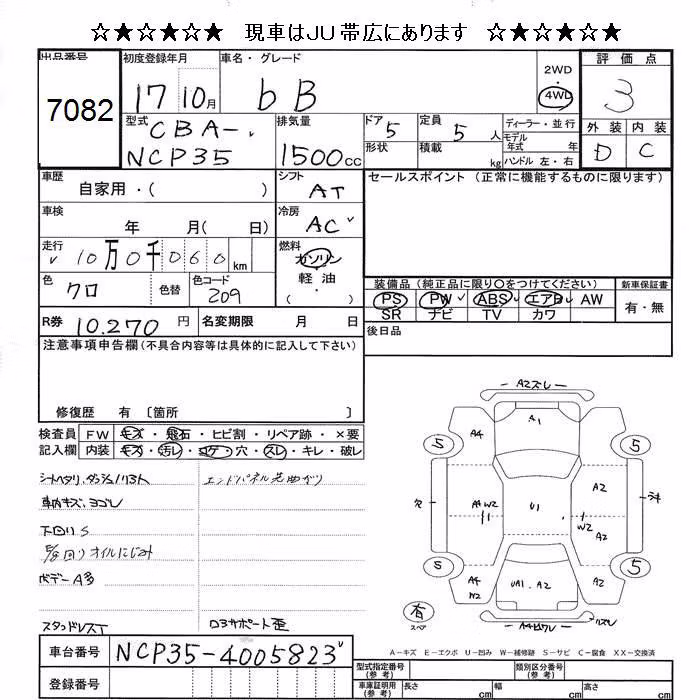 ☆★☆★☆★ 現車はJU帯広にあります ☆★☆★☆★
出品番号 初度登録年月 車名・グレード 2WD 評価点
7082 17 10月 bB 4WD 3
型式 CBA- 排気量 ドア 5 定員 5人 ディーラー・並行 外装 内装
NCP35 1500cc 形状 積載 kg モデル年式 年 D C
ハンドル 左・右
車歴 自家用・( ) シフト AT セールスポイント (正常に機能するものに限ります)
車検 年 月( 日) 冷房 AC
走行 10万0千060km 燃料 ガソリン
軽・油
( ・ )
色 クロ 色替 色コード 209
装備品 (純正品に限り○をつけてください) 新車保証書
PS PW ABS エアB AW 有・無
SR ナビ TV カワ
R券 10.270円 名変期限 月 日 後日品
注意事項申告欄(不具合内容等は具体的に記入して下さい)
修復歴 有 〔箇所 〕
検査員 FW キズ・飛石・ヒビ割・リペア跡・×要
記入欄 内装 キズ・汚レ・コゲ・穴・スレ・キレ・破レ
エンドパネル
車内キズ、ヨゴレ
下回りS
回りオイルにじみ
ボデーA多
スタッドレスT
コアサポート歪
A2ズレ
A1
A4
5 5
A2
U1
W2
A2
5 5
A4
W2
UA1.A2
A2
有
スペア
A-キズ E-エクボ U-凹み W-補修跡 S-サビ C-腐食 XX-交換済
車台番号 NCP35-4005823
登録番号
型式指定番号(参考) 類別区分番号(参考)
車庫証明用(参考) 長さ cm 幅 cm 高さ cm